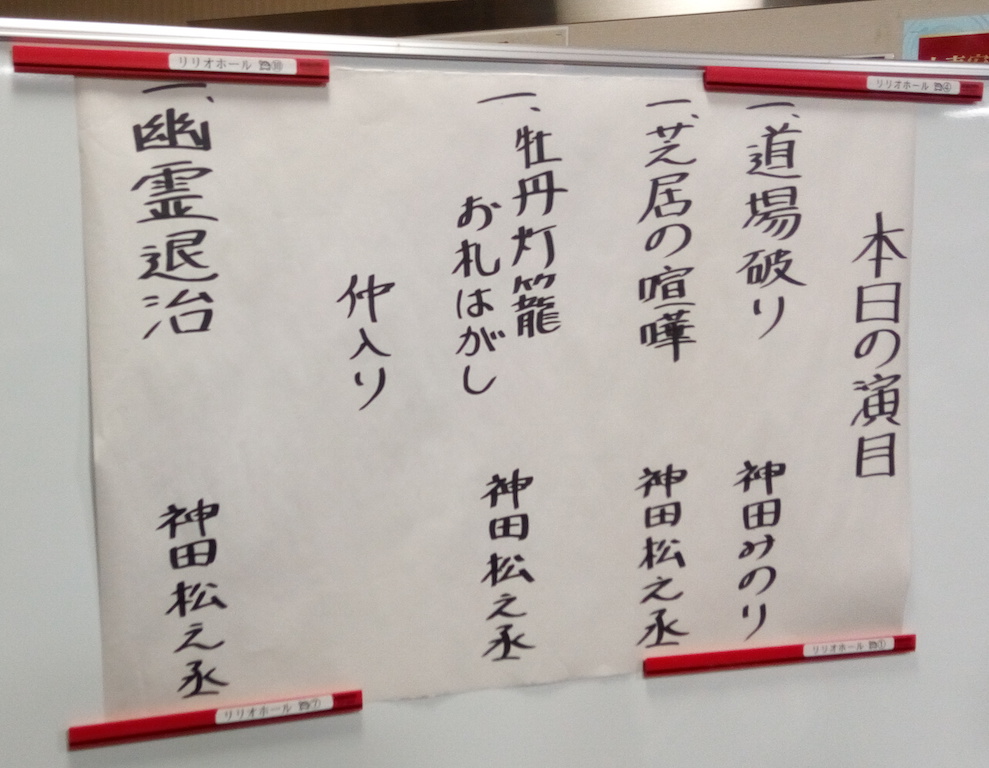 本日の演目
一、道場破り 神田みのり
一、芝居の喧嘩 神田松之丞
一、牡丹灯籠
お札はがし 神田松之丞
仲入り
一、幽霊退治 神田松之丞
リリオホール
リリオホール
リリオホール
リリオホール